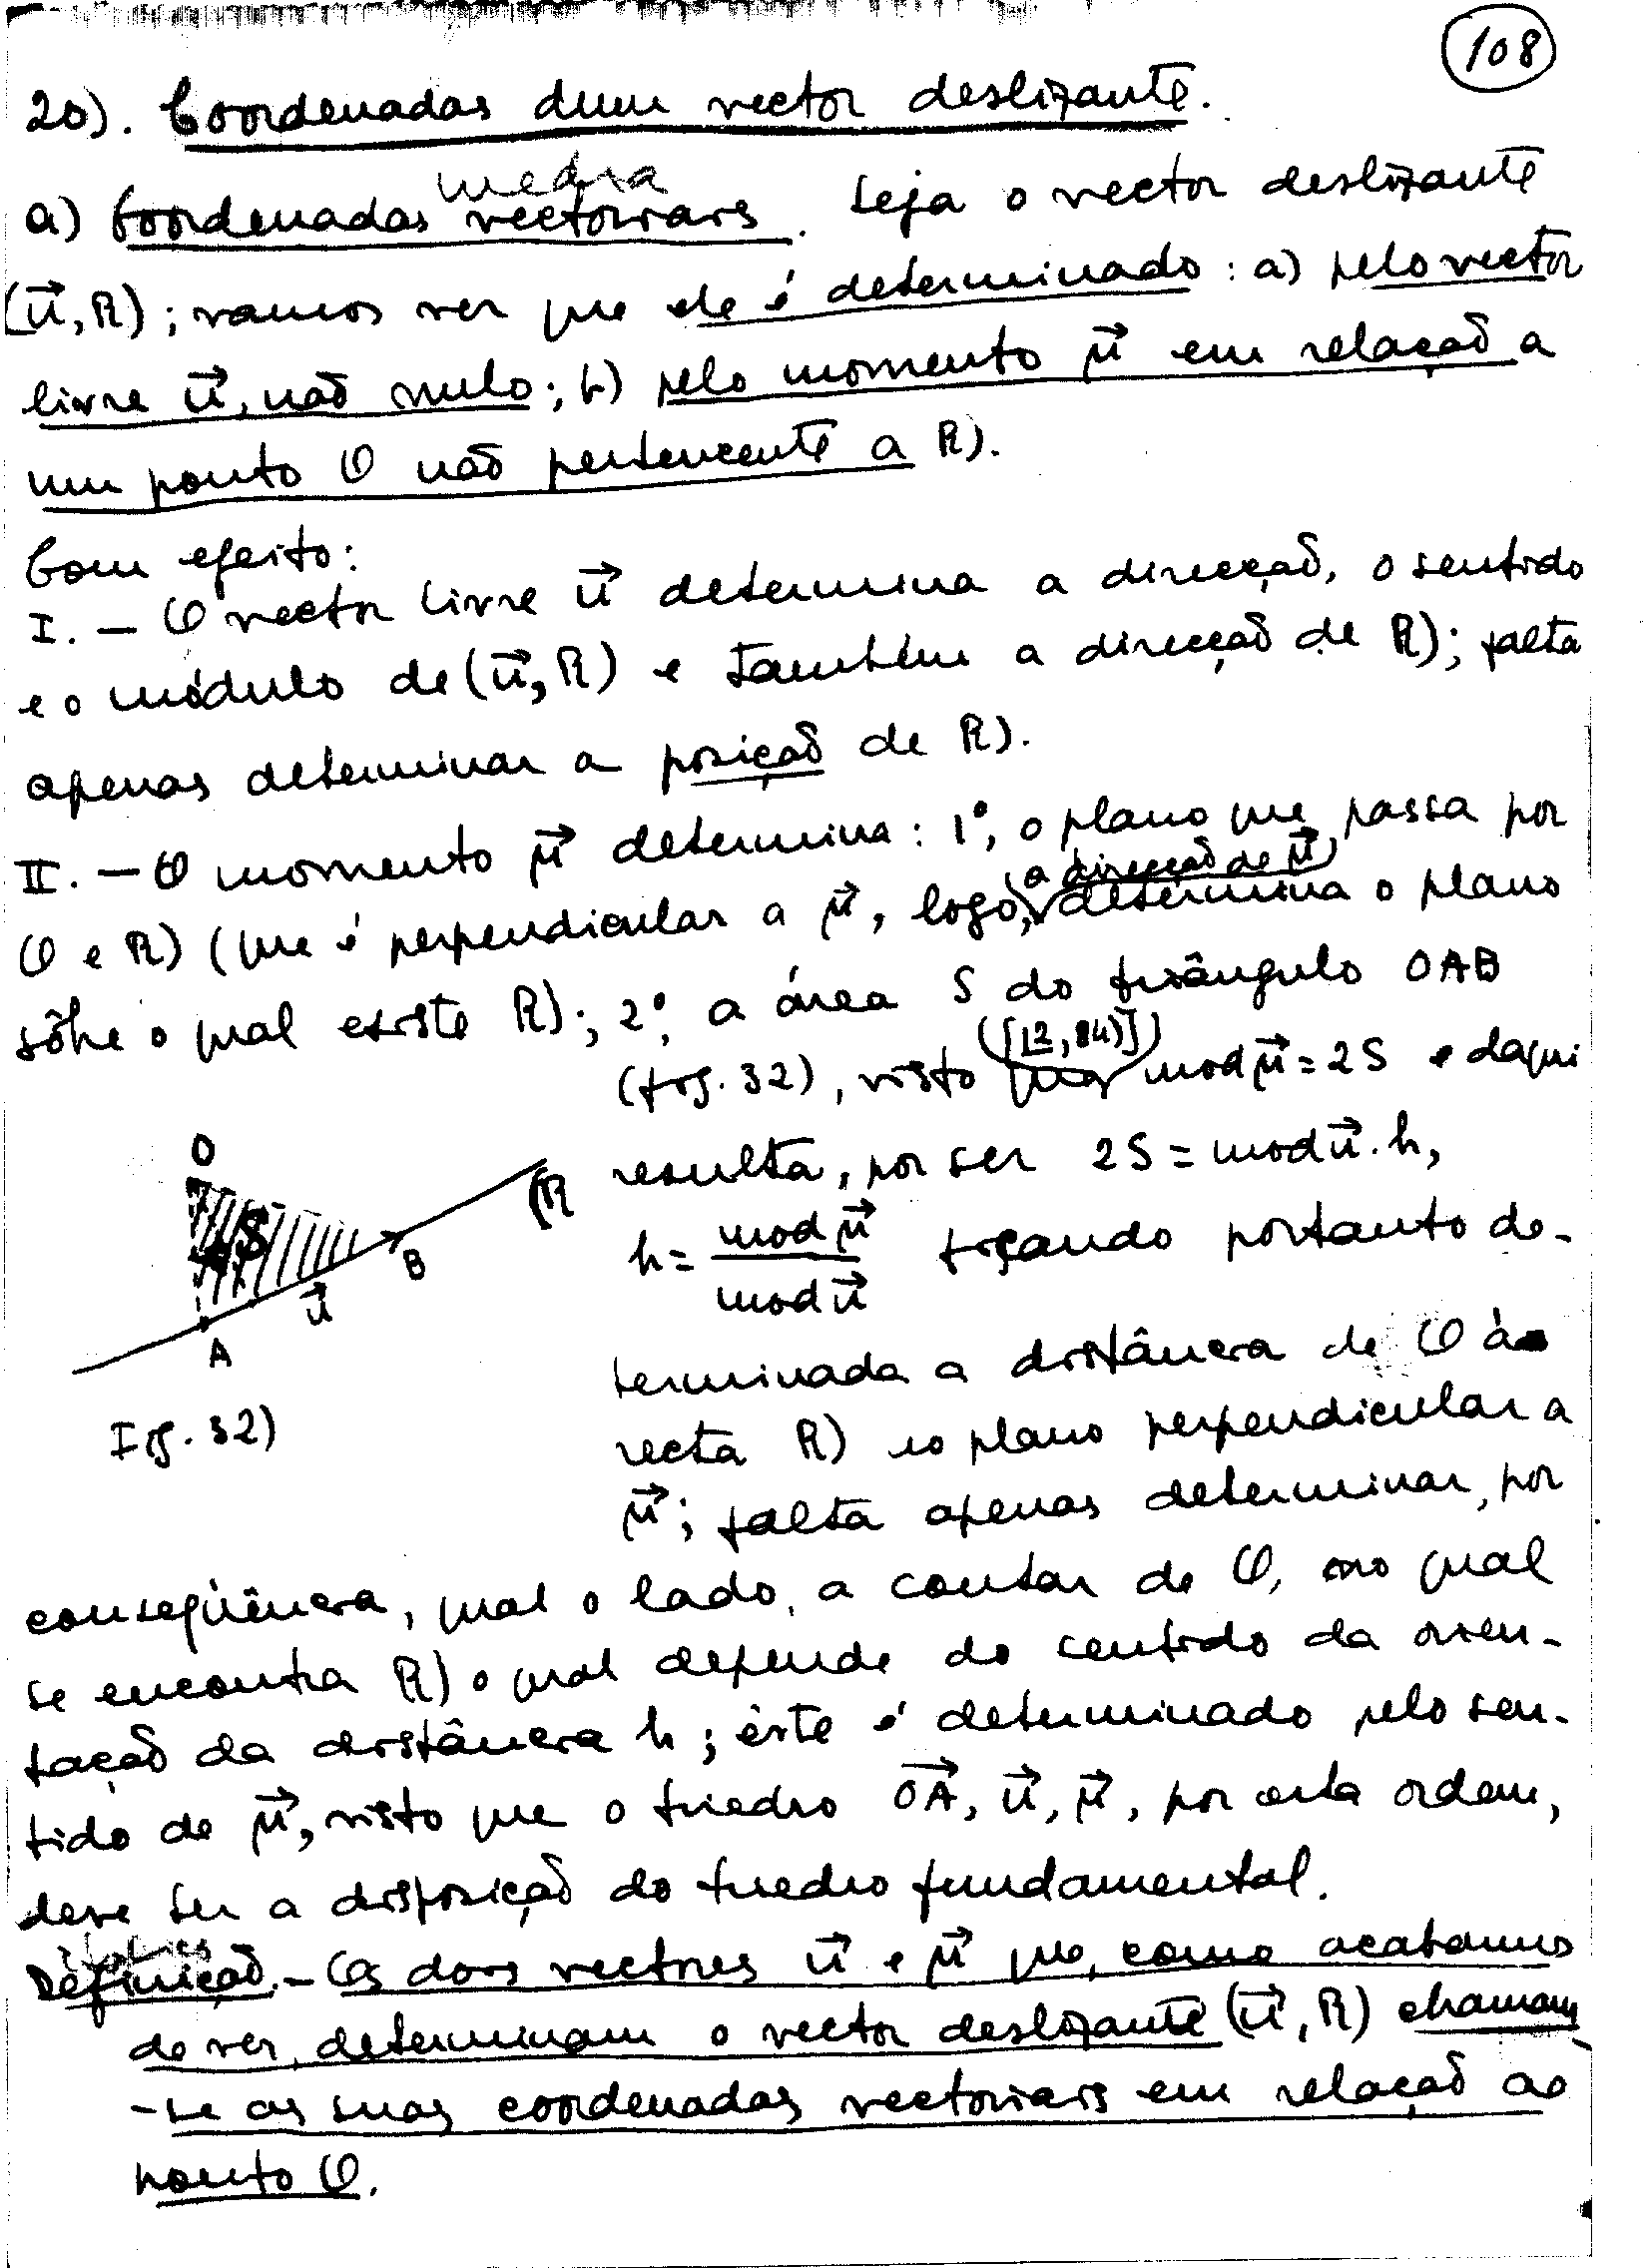 108
20). Coordenadas dum vector deslizante.
media
a) Coordenadas vectoriais. Seja o vector deslizante
(u⃗, R); vamos ver que ele é determinado: a) pelo vector
livre u⃗, não nulo; b) pelo momento μ⃗ em relação a
um ponto O não pertencente a R).
Com efeito:
I. — O vector livre u⃗ determina a direcção, o sentido
e o módulo de (u⃗, R) e também a direcção de R); falta
apenas determinar a posição de R).
II. — O momento μ⃗ determina: 1º, o plano que passa por
O e R) (que é perpendicular a μ⃗, logo, a direcção de μ⃗ determina o plano
sôbre o qual existe R); 2º, a área S do triângulo OAB
(fig. 32), visto que ([12, 84)]) mod μ⃗ = 2S e daqui
resulta, por ser 2S = mod u⃗ . h,
h = mod μ⃗ / mod u⃗ ficando portanto de-
terminada a distância de O à
recta R) e o plano perpendicular a
μ⃗; falta apenas determinar, por
conseqüência, qual o lado, a contar de O, no qual
se encontra R) o qual depende do sentido da orien-
tação da distância h; êste é determinado pelo sen-
tido de μ⃗, visto que o triedro OA⃗, u⃗, μ⃗, por esta ordem,
deve ter a disposição do triedro fundamental.
Definição. — Os dois vectores u⃗ e μ⃗ que, como acabamos
de ver, determinam o vector deslizante (u⃗, R) chamam
-se as suas coordenadas vectoriais em relação ao
ponto O.
O
S
R
B
u⃗
A
Fig. 32)